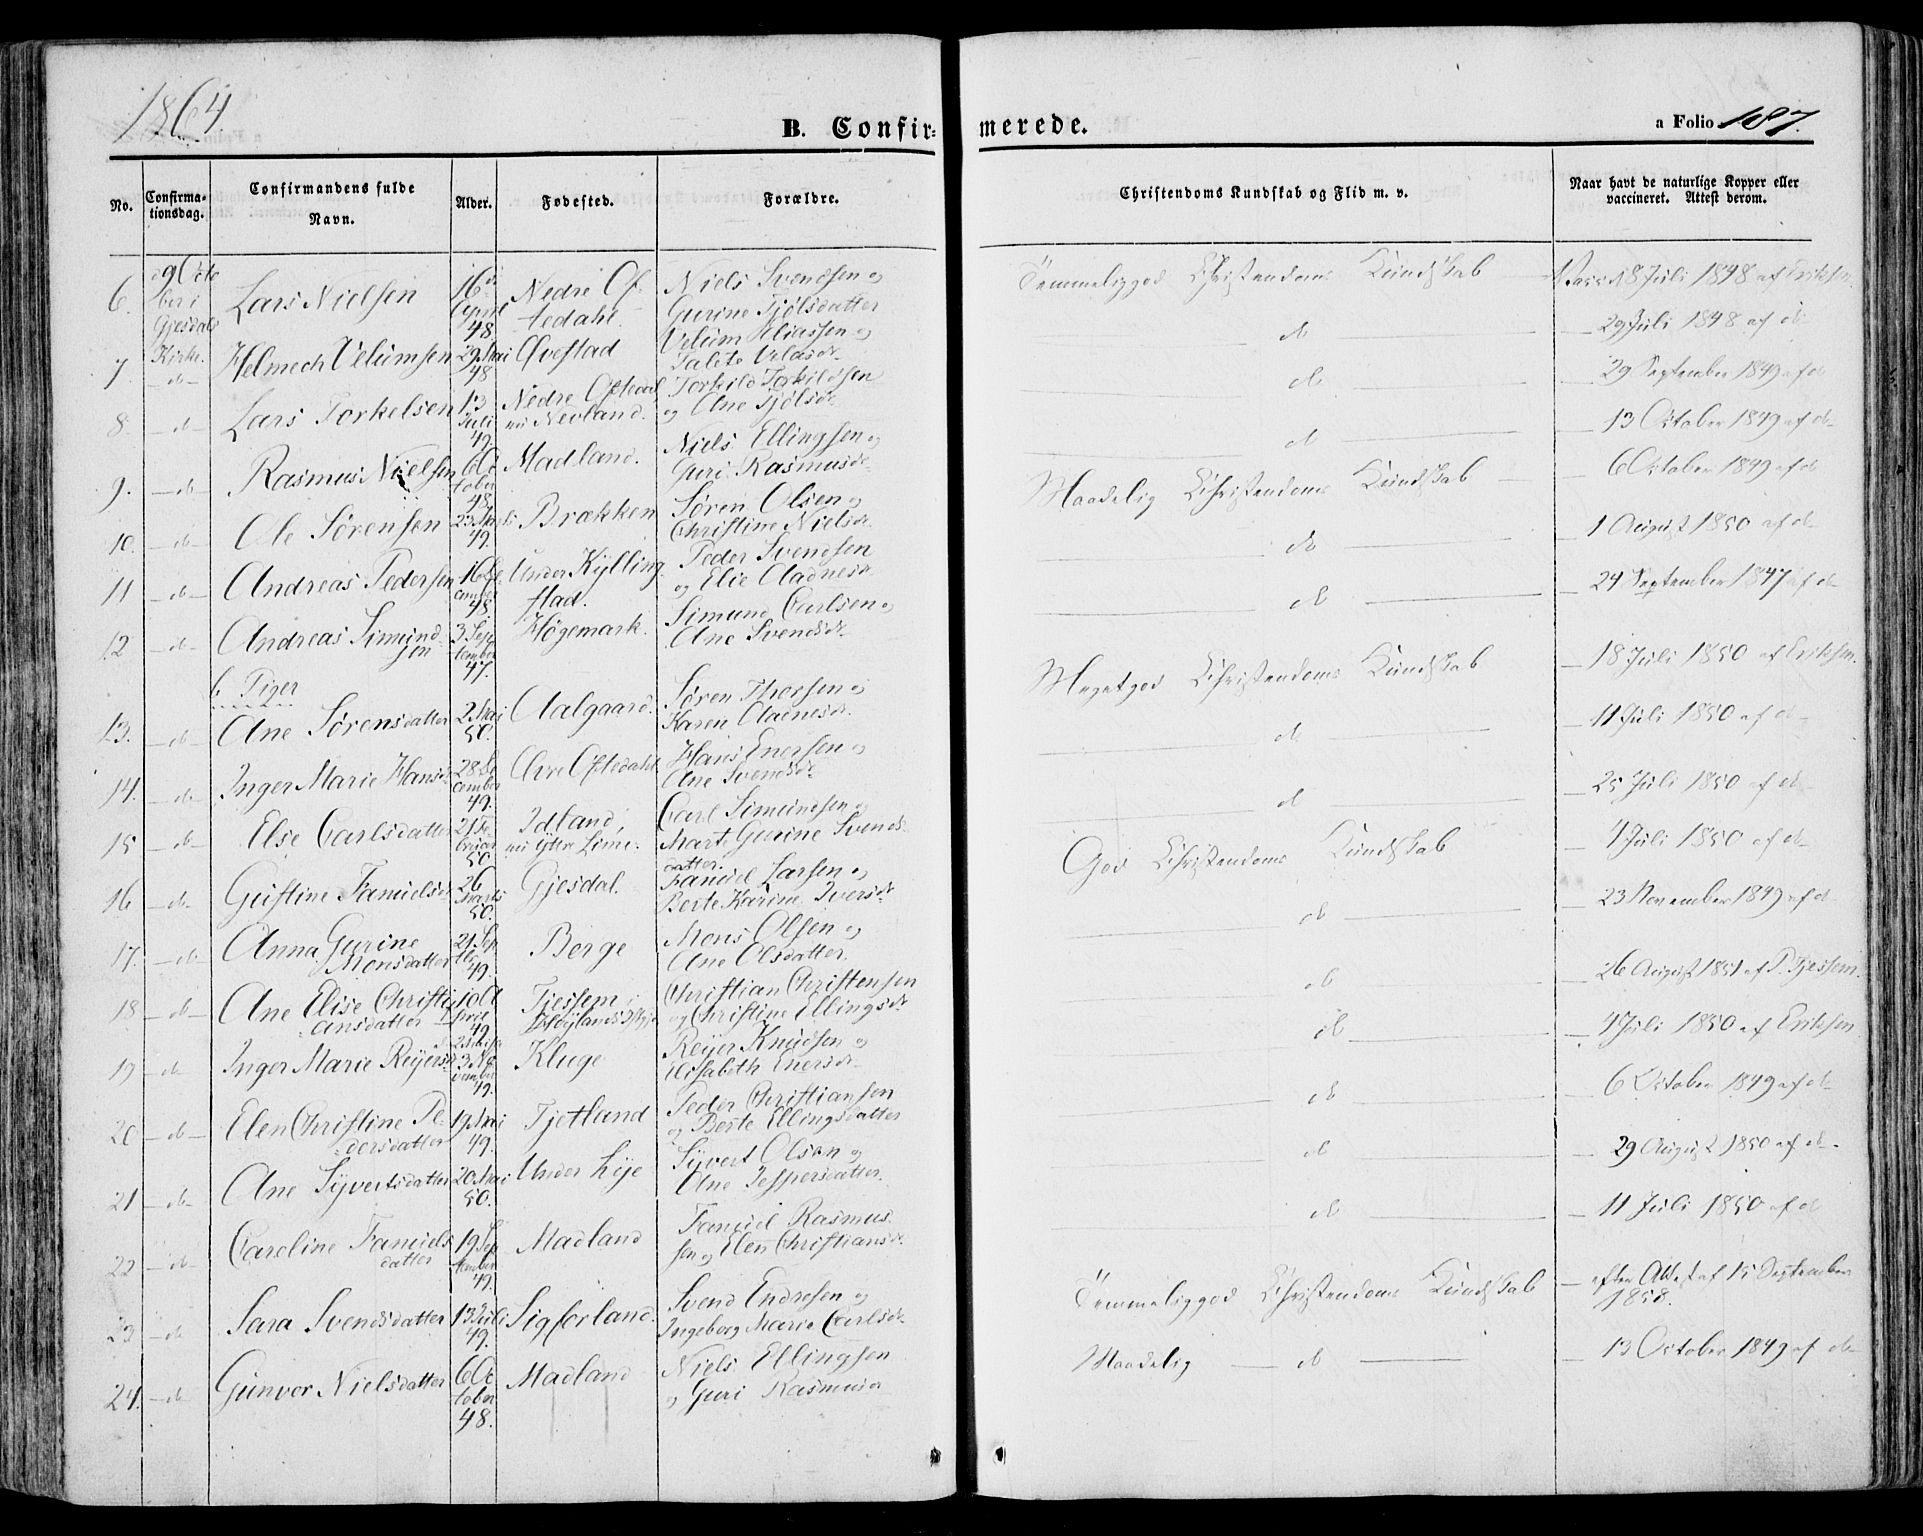 1864
B. Confirmerede.
a Folio 187.
No.
Confirmationsdag.
Confirmandens fulde Navn.
Alder.
Fødested.
Forældre.
Christendoms Kundskab og Flid m. v.
Naar havt de naturlige Kopper eller vaccineret. Attest derom.
6. 9 Octo
ber i
Gjesdals
Kirke.
Lars Nielsen
16de
April
48
Nedre Of
tedahl.
Niels Svendsen og
Gurine Tjølsdatter
Temmeliggod Christendoms Kundskab
8 Juli 1848 af Eriksen.
7. -d-
Helmech Velumsen
29 Mai
48
Qvestad
Velum Eliassen og
Talete
d
29 Juli 1848 af d
8. -d-
Lars Torkelsen
13
Juli
49.
Nedre Oftedal
nu Nevland.
Torkild Torkildsen
og Ane Tjølsdr
d
29 September 1849 af d
9. -d-
Rasmus Nielsen
6 Oc
tober
48
Madland.
Niels Ellingsen og
Guri Rasmusdr
d
13 October 1849 af d
10. -d-
Ole Sørensen
23 Marts
49.
Brækken
Søren Olsen og
Christine Nielsdr
Maadelig Christendoms Kundskab
6 October 1849 af d
11 -d-
Andreas Pedersen
16 De
cember
48.
Under Kylling
stad.
Peder Svendsen
og Elie Oladnesdr
d
1 August 1850 af d
12 -d-
Andreas Simund
sen
3 Sep
tember
47.
Høgemark.
Simund Carlsen og
Ane Svendsdr
d
24 September 1847 af d
b Piger
13. -d-
Ane Sørensdatter
2 Mai
50.
Aalgaard.
Søren Thorsen og
Karen Oladnesdr
Megetgod Christendoms Kundskab
18 Juli 1850 af Eriksen.
14. -d-
Inger Marie Hansdr
28 De
cember
49.
Øvre Oftedahl
Hans Enersen og
Ane Svendsdr
d
11 Juli 1850 af d
15 -d-
Else Carlsdatter
21 Fe
bruar
50
Idland,
nu Ytre Lime.
Carl Simunesen og
Marte Gurine Svends
datter.
d
25 Juli 1850 af d
16 -d-
Gustine Samuelsdr
26
Marts
50.
Gjesdal.
Samuel Larsen og
Berte Karine Iversdr
God Christendoms Kundskab
4 Juli 1850 af d
17. -d-
Anna Gurine
Monsdatter
21 Sep
tbr
49.
Berge
Mons Olsen og
Ane Olsdatter.
d
23 November 1849 af d
18 -d-
Ane Elise Christi
ansdatter
10
49
Tjessem,
Høylands
Christian Christensen
og Christine Ellingsdr
d
26 August 1851 af P. Tjessem.
19 -d-
Inger Marie Reijersdr
3 No
vember
49.
Kluge
Reijer Knudsen og
Elisabeth Enersdr
d
4 Juli 1850 af Eriksen
20 -d-
Elen Christine Pe
dersdatter
19 Mai
49.
Tjetland
Peder Christiansen
og Berte Ellingsdatter
d
6 October 1849 af d
21 -d-
Ane Syvertsdatter
20 Mai
50.
Under Lye
Syvert Olsen og
Ane Jespersdatter.
d
29 August 1850 af d
22 -d-
Caroline Samuels
datter
19 Sep
tember
49.
Madland
Samuel Rasmus
sen og Elen Christiansdr
d
11 Juli 1850 af d
23 -d-
Sara Svendsdatter
13 Juli
49.
Sigforland.
Svend Endresen og
Ingeborg Marie Carlsdr
Temmeliggod Christendoms Kundskab
efter Attest af 15 September
1858.
24. -d-
Gunvor Nielsdatter
6 Oc
tober
48.
Madland
Niels Ellingsen
og Guri Rasmusdr
Maadelig d
13 October 1849 af d